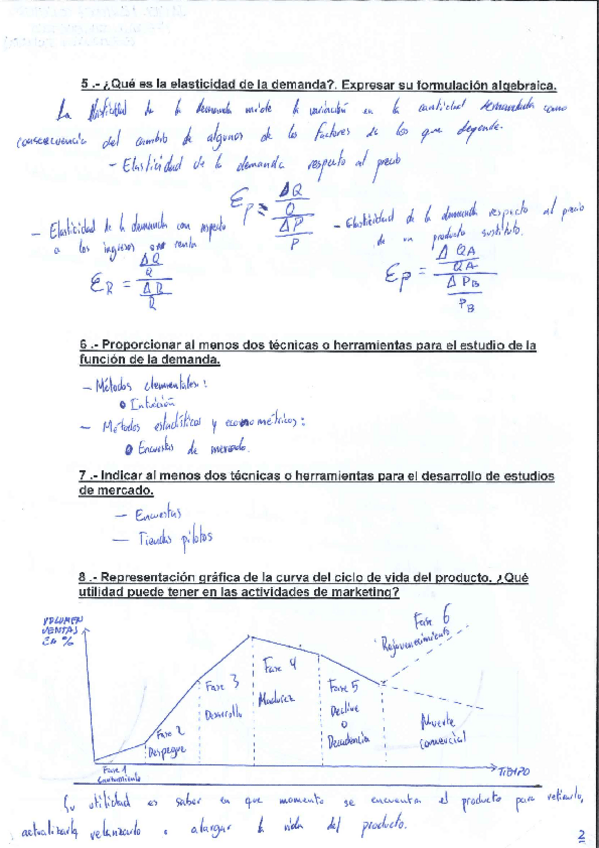 5 .- ¿Qué es la elasticidad de la demanda?. Expresar su formulación algebraica.
La Elasticidad de la demanda mide la variación en la cantidad demandada como
consecuencia del cambio de algunos de los factores de los que depende.
- Elasticidad de la demanda respecto al precio
Ep = (ΔQ / Q) / (ΔP / P)
- Elasticidad de la demanda con respecto
a los ingresos o renta
ER = (ΔQ / Q) / (ΔR / R)
- Elasticidad de la demanda respecto al precio
de un producto sustituto.
Ep = (ΔQA / QA) / (ΔPB / PB)
6 .- Proporcionar al menos dos técnicas o herramientas para el estudio de la
función de la demanda.
- Métodos elementales:
Intuición
- Métodos estadísticos y econométricos:
Encuestas de mercado.
7 .- Indicar al menos dos técnicas o herramientas para el desarrollo de estudios
de mercado.
- Encuestas
- Tiendas pilotos
8 .- Representación gráfica de la curva del ciclo de vida del producto. ¿Qué
utilidad puede tener en las actividades de marketing?
VOLUMEN
VENTAS
EN %
Fase 1
Fase 2
Despegue
Fase 3
Desarrollo
Fase 4
Madurez
Fase 5
Declive
o
Decadencia
Fase 6
Rejuvenecimiento
Muerte
comercial
TIEMPO
Su utilidad es saber en que momento se encuentra el producto para retirarlo,
actualizarlo, relanzarlo o alargar la vida del producto.
2